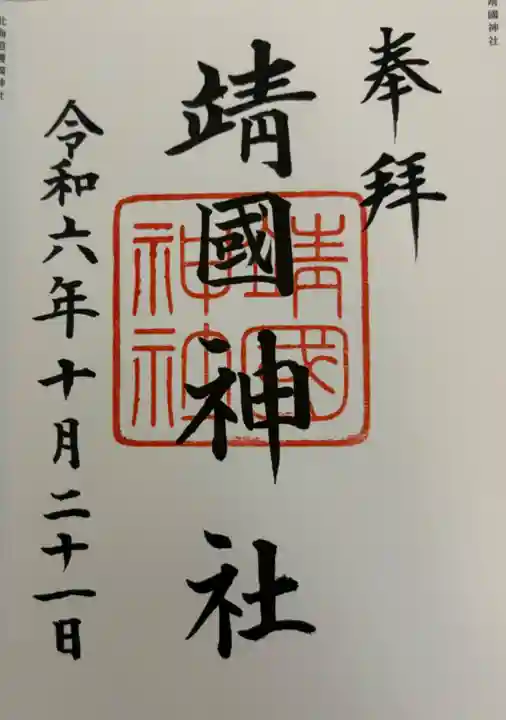 靖國神社
奉拝
靖國神社
令和六年十月二十一日
靖國神社
北海道護國神社